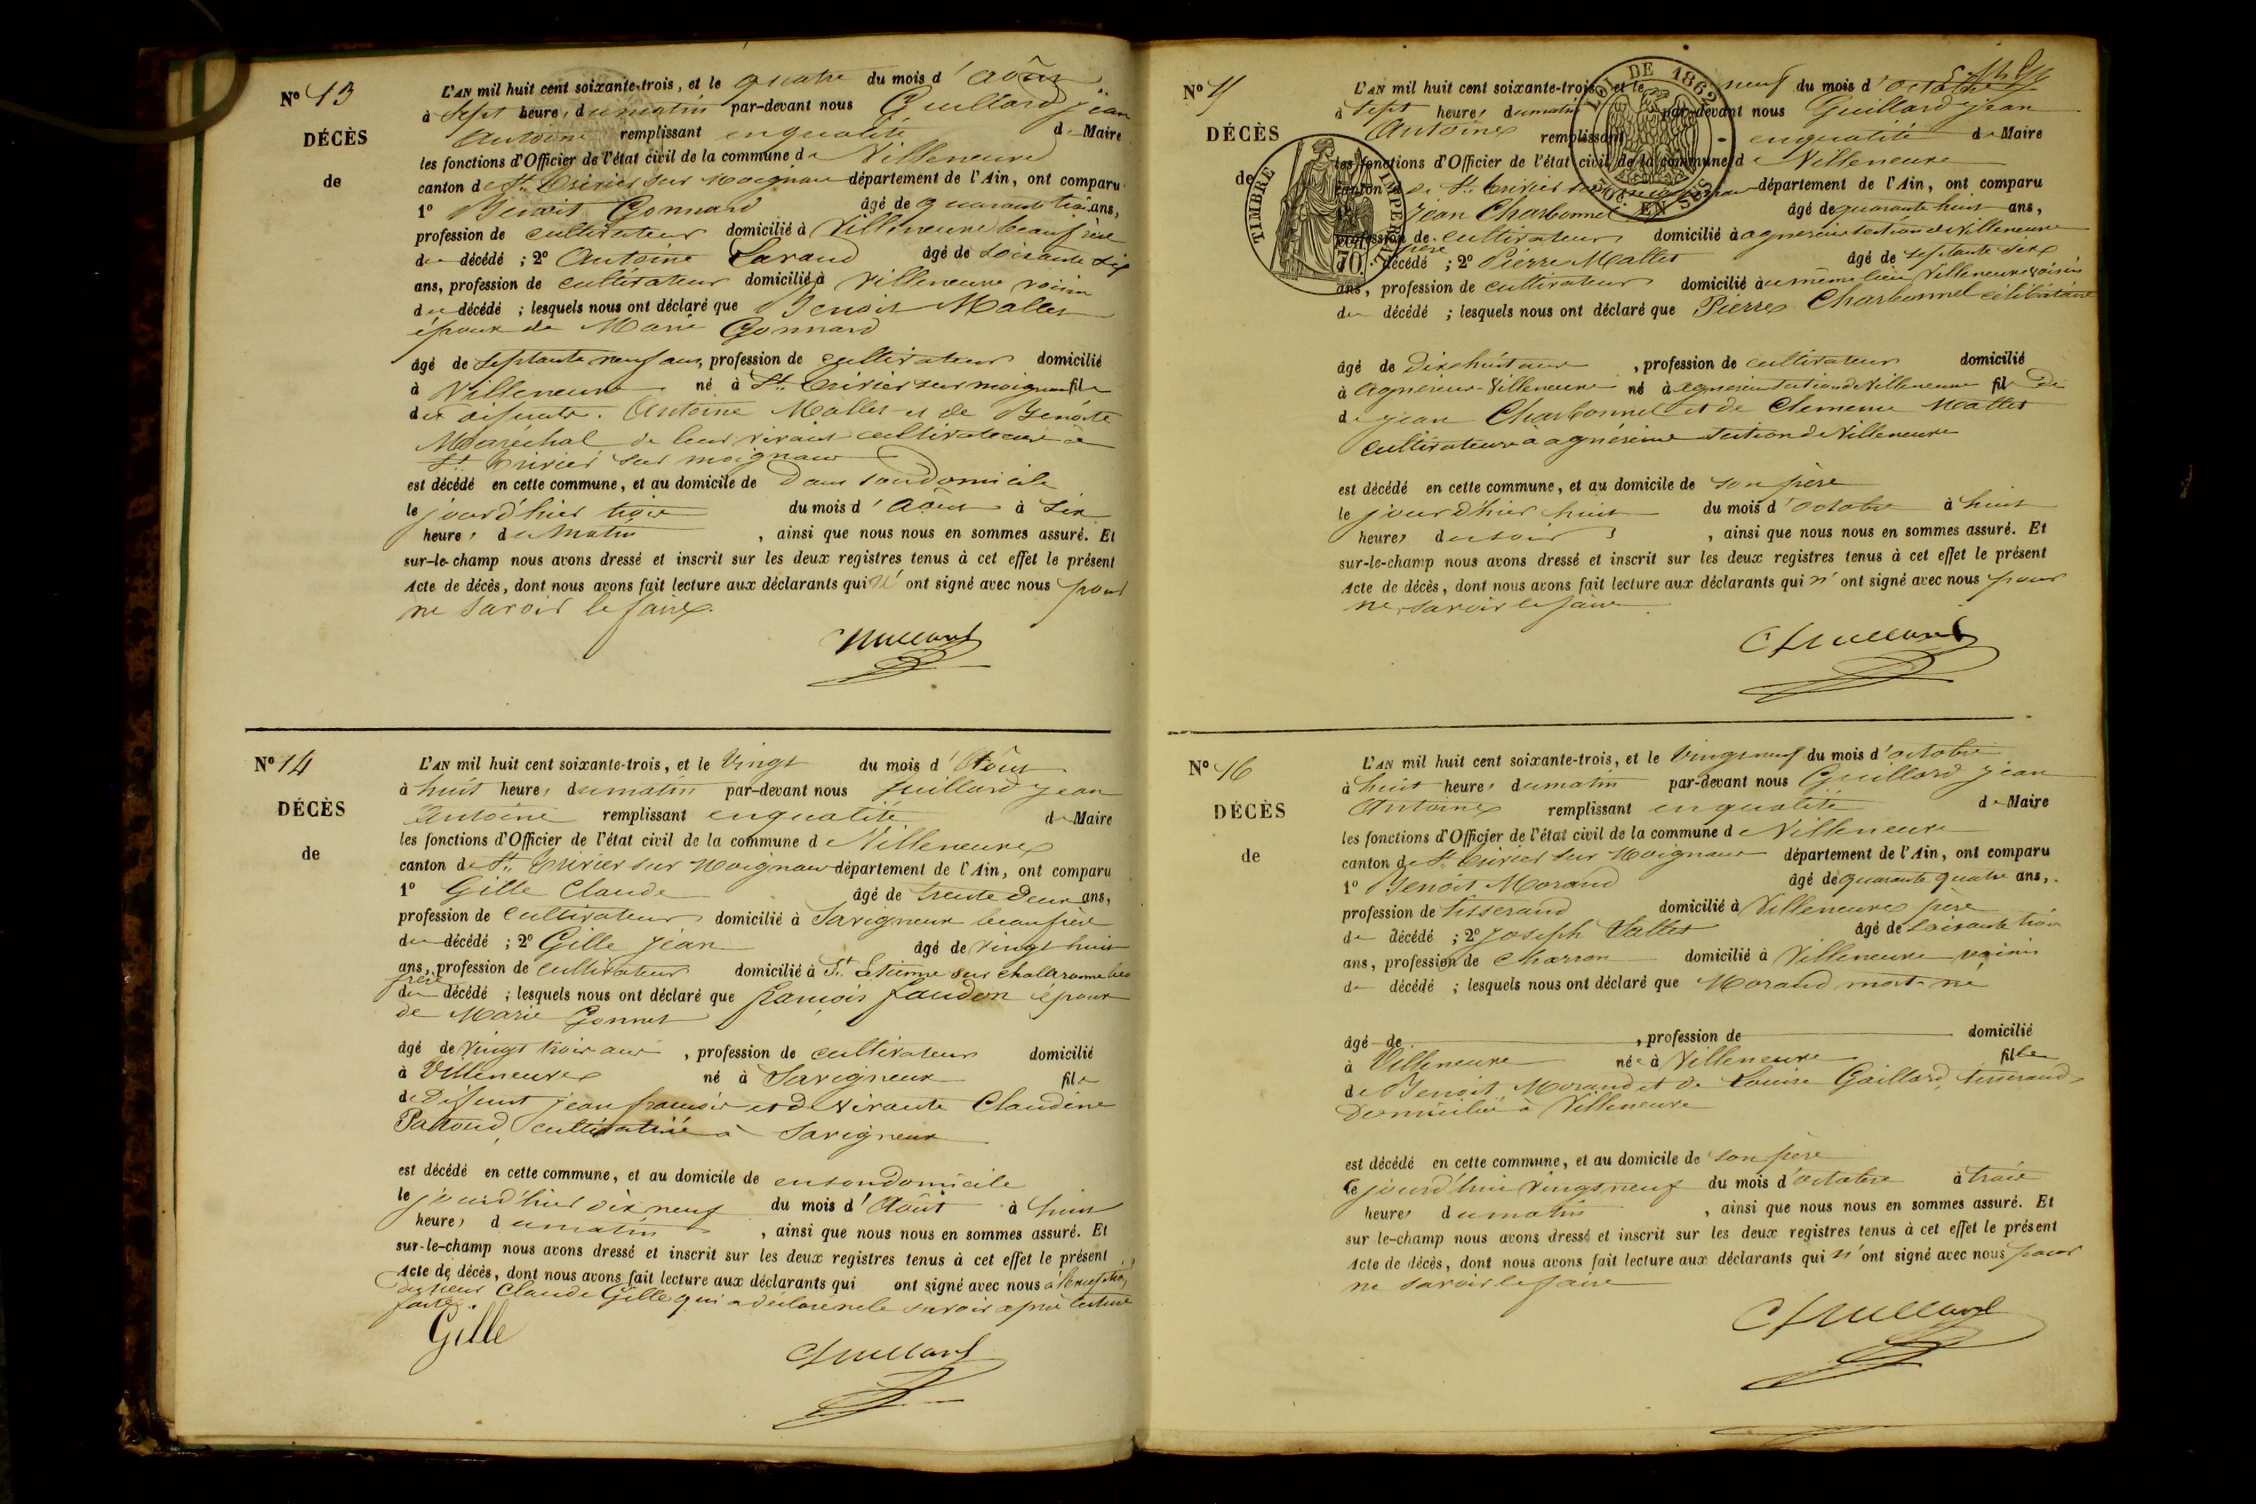 N° 13
DÉCÈS
de
L'AN mil huit cent soixante-trois, et le quatre du mois d'Août
à Sept heures du matin par-devant nous Guillard jean
Antoine remplissant en qualité de Maire
les fonctions d'Officier de l'état civil de la commune de Villeneuve
canton de St. trivier sur moignans département de l'Ain, ont comparu
1° Benoit Gonnard âgé de quarante trois ans,
profession de cultivateur domicilié à Villeneuve beaufrère
du décédé ; 2° Antoine Laraud âgé de soixante six
ans, profession de cultivateur domicilié à Villeneuve voisin
du décédé ; lesquels nous ont déclaré que Benoit Mallet
époux de Marie Gonnard
âgé de septante neuf ans, profession de cultivateur domicilié
à Villeneuve né à St. trivier sur moignans fils
des défunts Antoine Mallet et de Benoîte
Maréchal de leur vivant cultivateurs à
St trivier sur moignans
est décédé en cette commune, et au domicile de dans son domicile
le jour d'hier trois du mois d'Août à six
heures du Matin, ainsi que nous nous en sommes assuré. Et
sur-le-champ nous avons dressé et inscrit sur les deux registres tenus à cet effet le présent
Acte de décès, dont nous avons fait lecture aux déclarants qui n'ont signé avec nous pour
ne savoir le faire.
Guillard
N° 14
DÉCÈS
de
L'AN mil huit cent soixante-trois, et le Vingt du mois d'Août
à huit heures du matin par-devant nous Guillard jean
Antoine remplissant en qualité de Maire
les fonctions d'Officier de l'état civil de la commune de Villeneuve
canton de St. trivier sur Moignans département de l'Ain, ont comparu
1° Gille Claude âgé de trente deux ans,
profession de cultivateur domicilié à Savigneux beaufrère
du décédé ; 2° Gille jean âgé de vingt huit
ans, profession de cultivateur domicilié à St Etienne sur chalaronne beau
frère
du décédé ; lesquels nous ont déclaré que françois faudon époux
de Marie Gonnet
âgé de vingt trois ans, profession de cultivateur domicilié
à Villeneuve né à Savigneux fils
de Défunt jean françois et de vivante Claudine
cultivatrice à Savigneux
est décédé en cette commune, et au domicile de en son domicile
le jour d'hier dix neuf du mois d'Août à huit
heures du matin, ainsi que nous nous en sommes assuré. Et
sur-le-champ nous avons dressé et inscrit sur les deux registres tenus à cet effet le présent
Acte de décès, dont nous avons fait lecture aux déclarants qui ont signé avec nous à l'exception
Claude Gille qui a déclaré ne le savoir après lecture
faite.
Gille
Guillard
N° 15
DÉCÈS
de
TIMBRE IMPERIAL
70
LOI DE 1862
2/10es EN SUS
L'AN mil huit cent soixante-trois, et le neuf du mois d'octobre
à sept heures du matin par-devant nous Guillard jean
Antoine remplissant en qualité de Maire
les fonctions d'Officier de l'état civil de la commune de Villeneuve
canton de St. trivier sur moignans département de l'Ain, ont comparu
1° jean Charbonnel âgé de quarante huit ans,
profession de cultivateur domicilié à agnereins section de Villeneuve
père
du décédé ; 2° Pierre Mallet âgé de septante six
ans, profession de cultivateur domicilié au même lieu Villeneuve voisin
du décédé ; lesquels nous ont déclaré que Pierre Charbonnel célibataire
âgé de dix huit ans, profession de cultivateur domicilié
à agnereins Villeneuve né à agnereins section de Villeneuve fils de
de jean Charbonnel et de Clemence Mallet
cultivateurs à agnéreins section de Villeneuve
est décédé en cette commune, et au domicile de son père
le jour d'hier huit du mois d'octobre à huit
heures du soir, ainsi que nous nous en sommes assuré. Et
sur-le-champ nous avons dressé et inscrit sur les deux registres tenus à cet effet le présent
Acte de décès, dont nous avons fait lecture aux déclarants qui n'ont signé avec nous pour
ne savoir le faire
Guillard
N° 16
DÉCÈS
de
L'AN mil huit cent soixante-trois, et le Vingt neuf du mois d'octobre
à huit heures du matin par-devant nous Guillard jean
Antoine remplissant en qualité de Maire
les fonctions d'Officier de l'état civil de la commune de Villeneuve
canton de St. trivier sur Moignans département de l'Ain, ont comparu
1° Benoit Morand âgé de quarante quatre ans,
profession de tisserand domicilié à Villeneuve père
de décédé ; 2° joseph Vallet âgé de soixante trois
ans, profession de charron domicilié à Villeneuve voisin
de décédé ; lesquels nous ont déclaré que Morand mort-né
âgé de , profession de domicilié
à Villeneuve née à Villeneuve fille
de Benoit Morand et de Louise Gaillard, tisserands
domiciliés à Villeneuve
est décédé en cette commune, et au domicile de son père
le jourd'hui vingt neuf du mois d'octobre à trois
heures du matin, ainsi que nous nous en sommes assuré. Et
sur-le-champ nous avons dressé et inscrit sur les deux registres tenus à cet effet le présent
Acte de décès, dont nous avons fait lecture aux déclarants qui n'ont signé avec nous pour
ne savoir le faire
Guillard